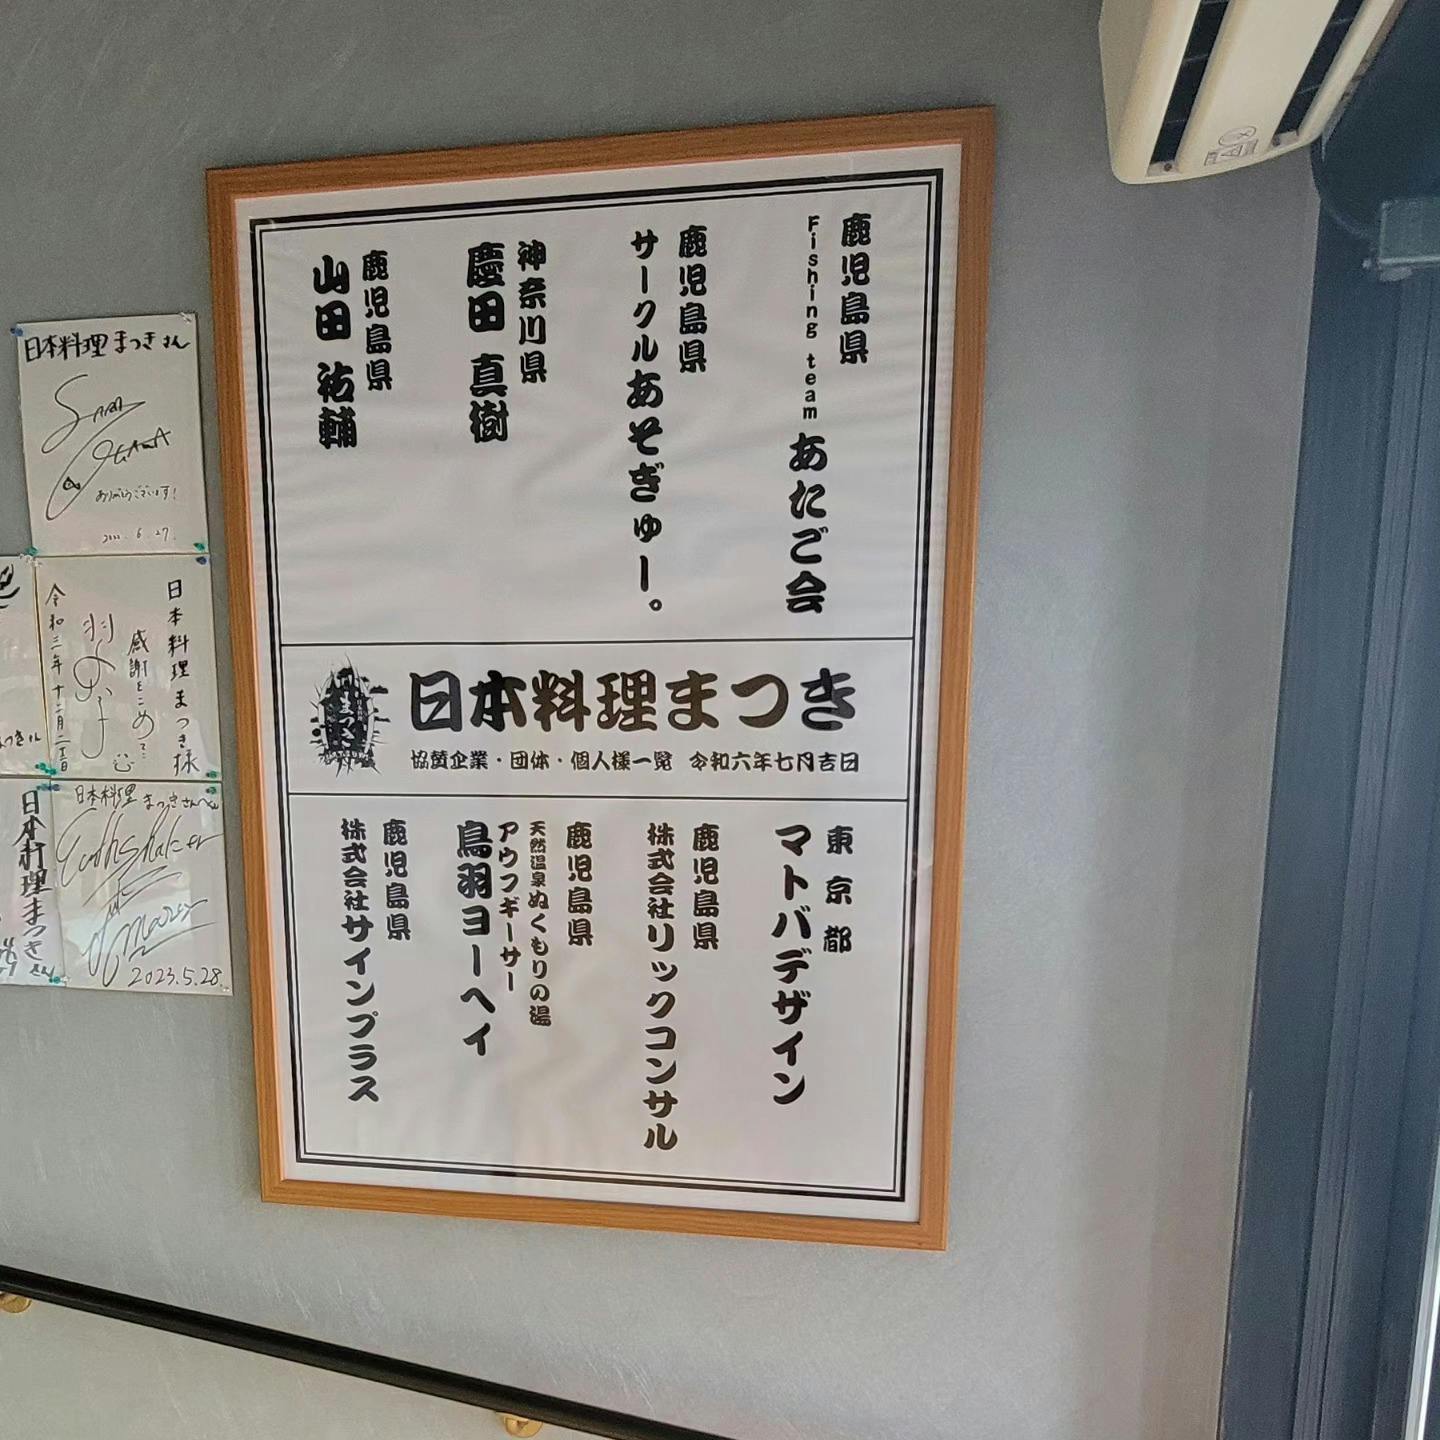 鹿児島県
Fishing team あたご会
鹿児島県
サークルあそぎゅー。
神奈川県
慶田 真樹
鹿児島県
山田 祐輔
まつき
日本料理まつき
協賛企業・団体・個人様一覧 令和六年七月吉日
東京都
マトバデザイン
鹿児島県
株式会社リックコンサル
鹿児島県
天然温泉ぬくもりの湯
アウフギーサー
鳥羽ヨーヘイ
鹿児島県
株式会社サインプラス
日本料理まつきさん
ありがとうございます!
6.27.
日本料理まつき様
感謝をこめて…
令和三年十二月二十一日
日本料理まつきさんへ
2023.5.28.
日本料理まつきさん